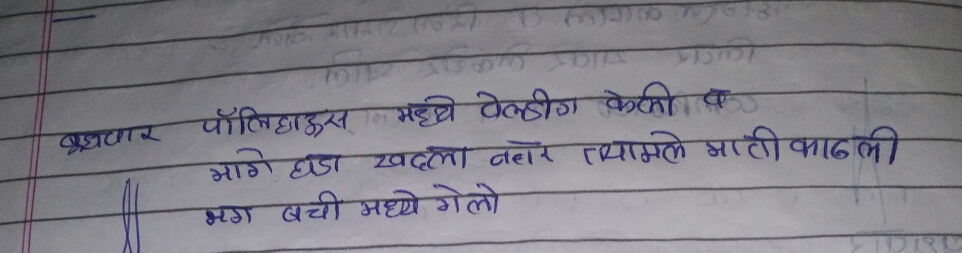 बुधवार पॉलिहाऊस मध्ये वेल्डींग केली व
मागे खड्डा खदला त्यामले माती काढली
मग बची मध्ये गेलो